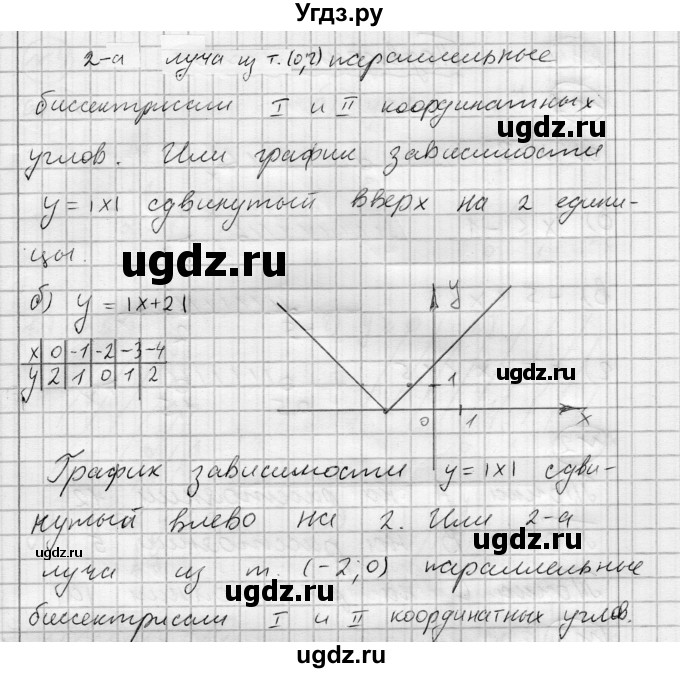 Угдз.ру
2-а луча из т. (0,2) параллельные
биссектрисам I и II координатных
ugdz.ru
углов. Или график зависимости
y = |x| сдвинутый вверх на 2 едини-
цы.
ugdz.ru
б) y = |x+2|
x 0 -1 -2 -3 -4
y 2 1 0 1 2
y
ugdz.ru
1
0 1 x
График зависимости y = |x| сдви-
нутый влево на 2. Или 2-а
ugdz.ru
ugdz.ru
луча из т. (-2; 0) параллельные
ugdz.ru
ugdz.ru
биссектрисам I и II координатных углов.
ugdz.ru